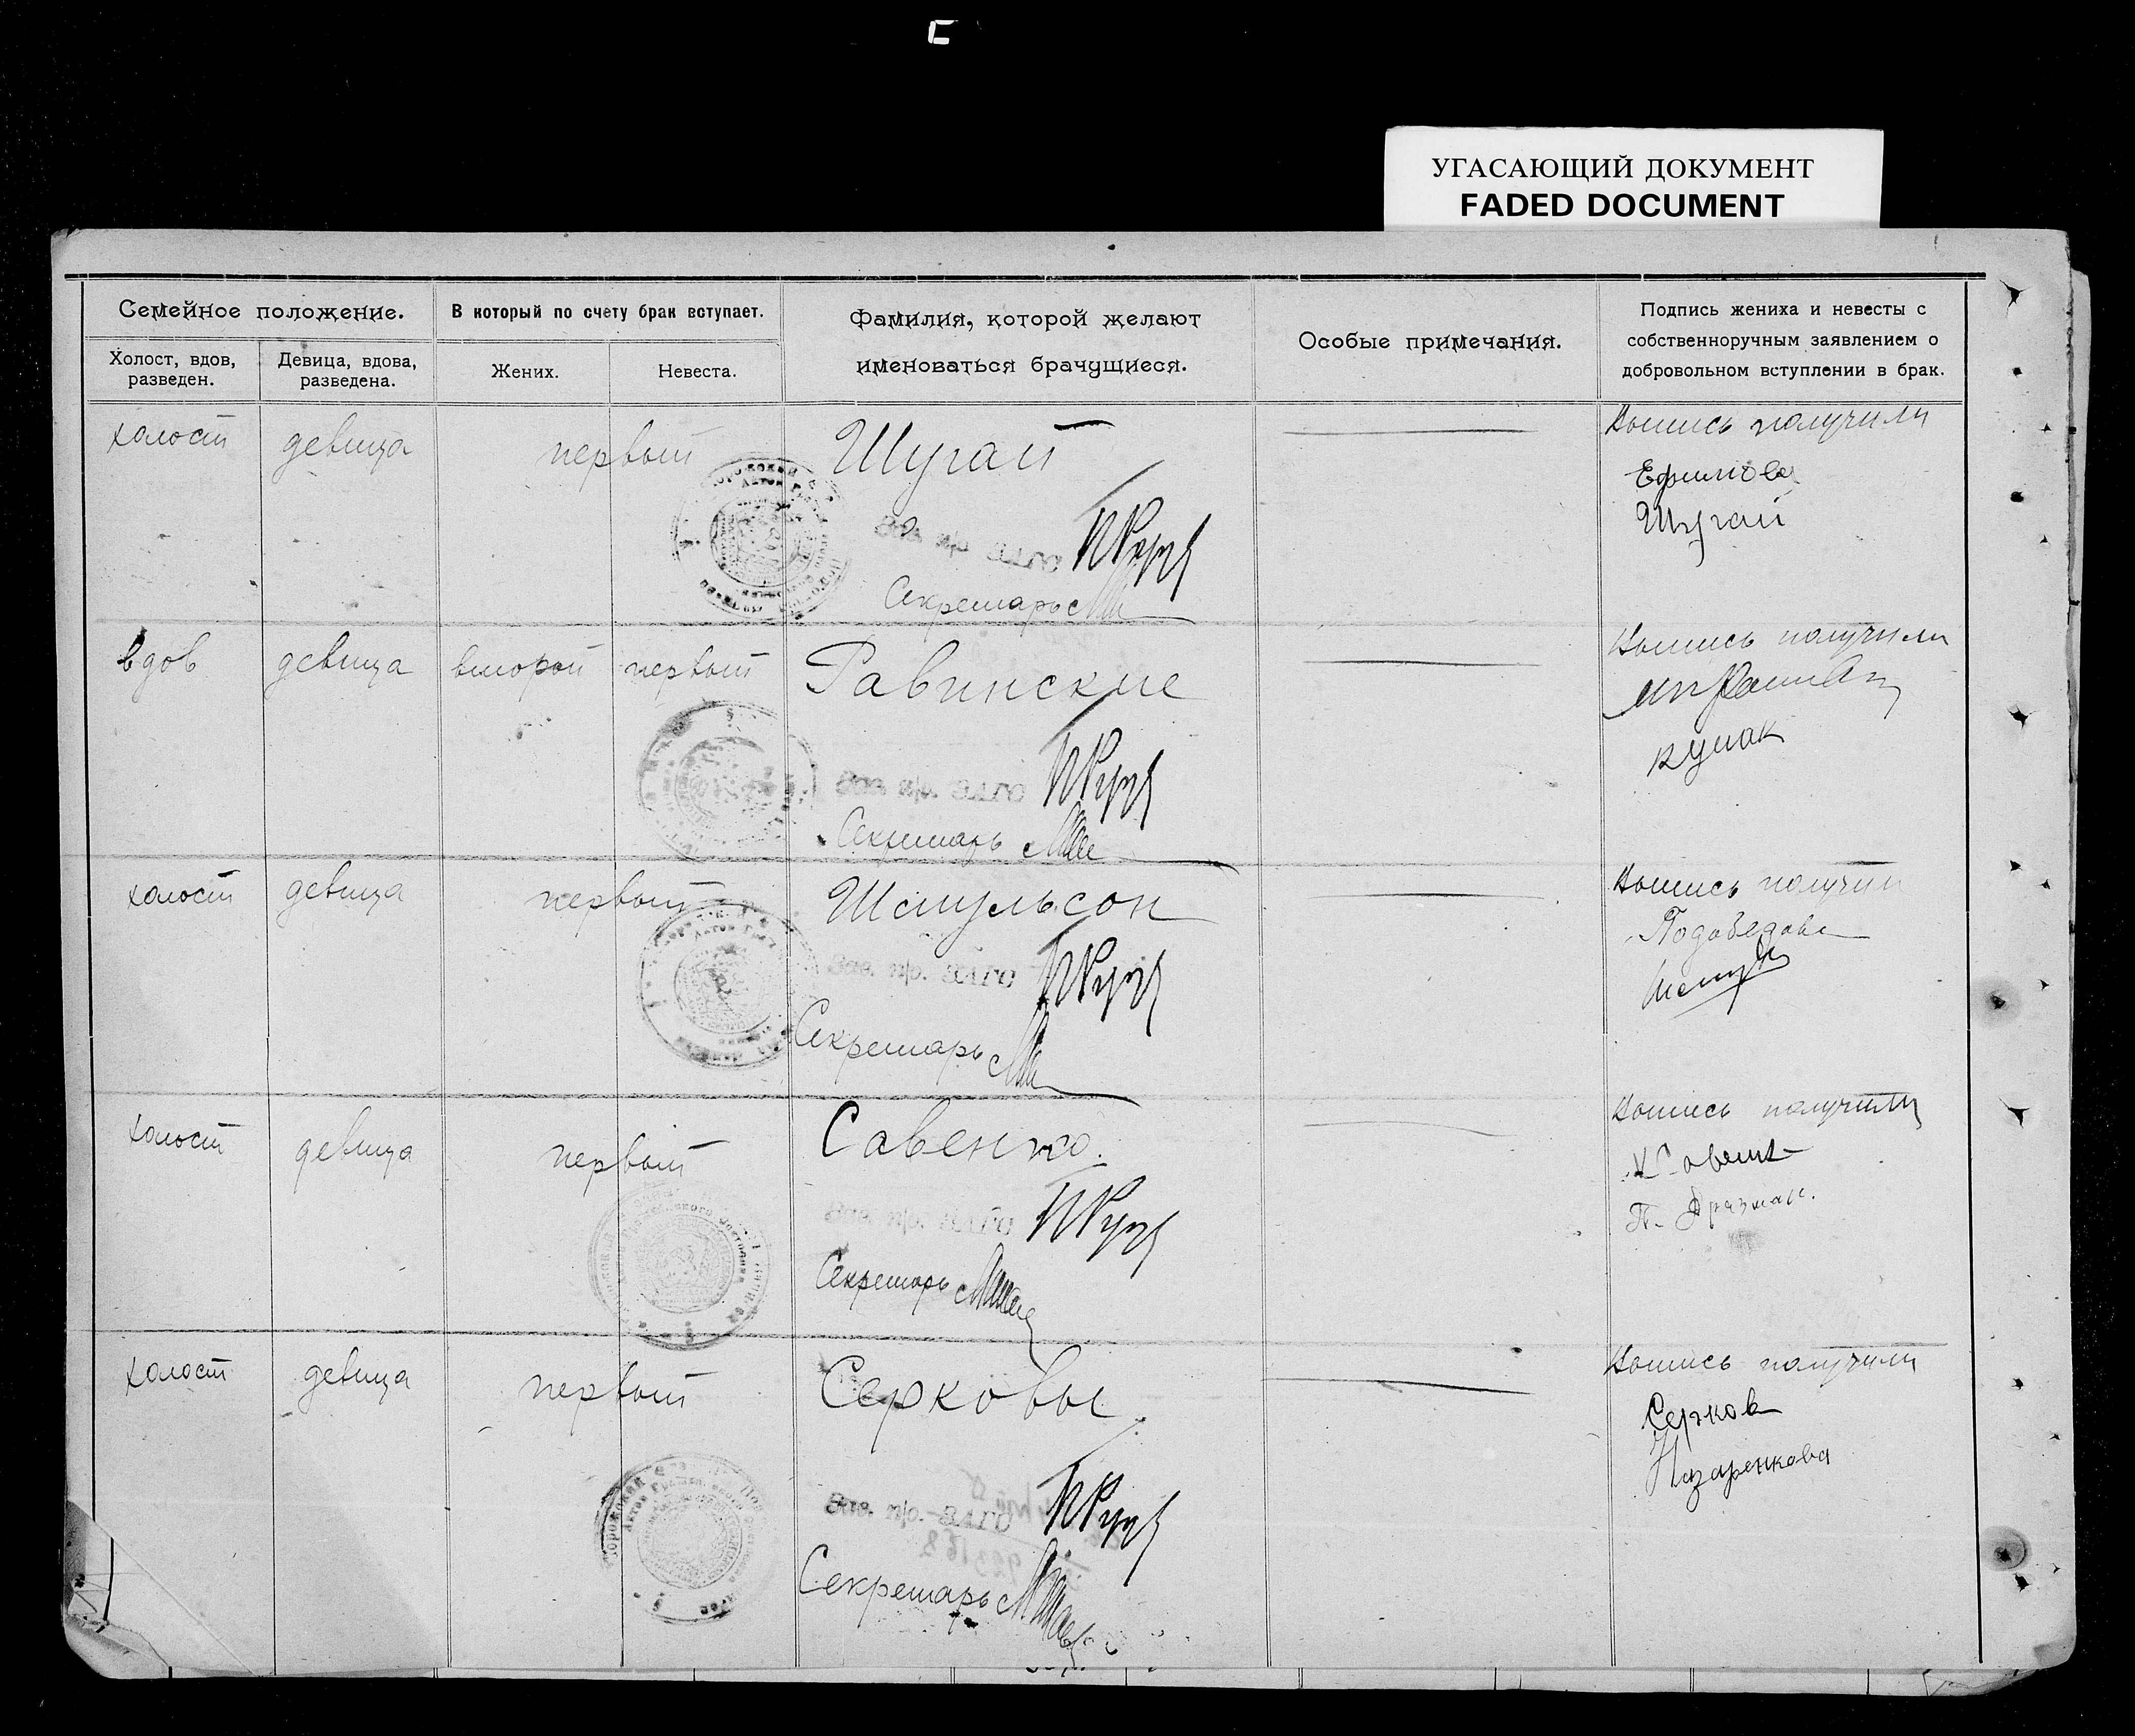 УГАСАЮЩИЙ ДОКУМЕНТ
FADED DOCUMENT
Семейное положение.
Холост, вдов, разведен.
Девица, вдова, разведена.
В который по счету брак вступает.
Жених.
Невеста.
Фамилия, которой желают
именоваться брачущиеся.
Особые примечания.
Подпись жениха и невесты с
собственноручным заявлением о
добровольном вступлении в брак.
холост девица первый Шугай
Выпись получили
Ефимова
Шугай
Зав. п/о. ЗАГС
Секретарь
вдов девица второй первый Равинские
Выпись получили
Кумак
Зав. п/о. ЗАГС
Секретарь
холост девица первый Шмульсон
Выпись получили
Подобедова
Зав. п/о. ЗАГС
Секретарь
холост девица первый Савенко.
Выпись получили
Зав. п/о. ЗАГС
Секретарь
холост девица первый Серковы
Выпись получили
Серков
Назаренкова
Зав. п/о. ЗАГС
Секретарь